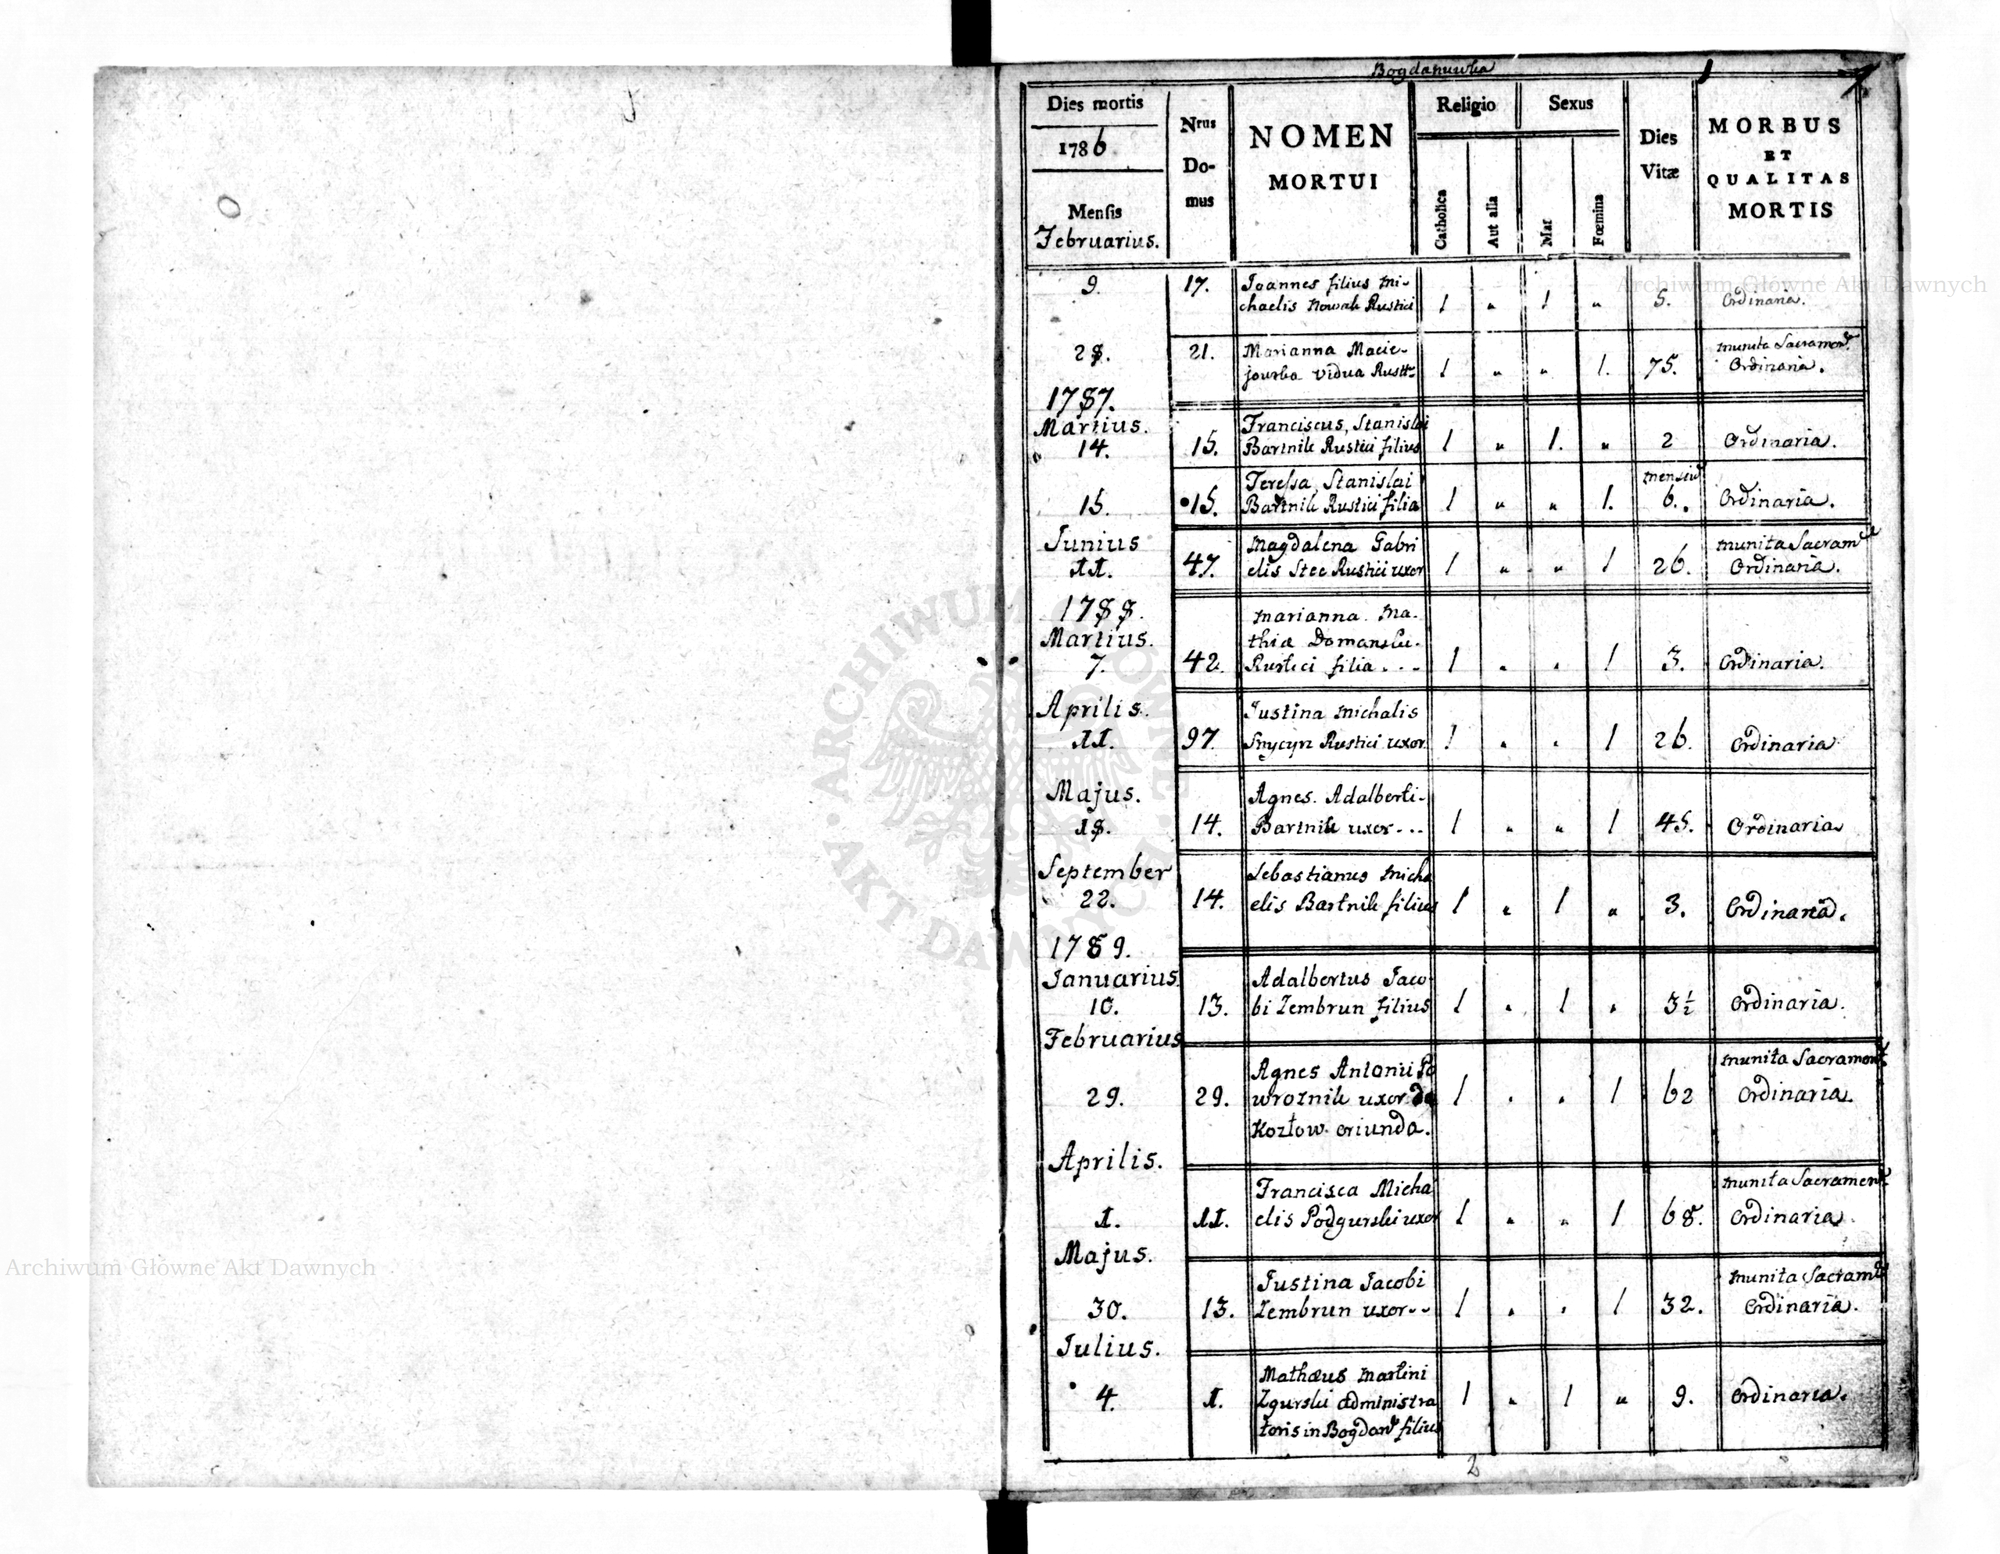 Bogdanuwka
1
Dies mortis
1786
Mensis
Februarius.
Nrus
Do-
mus
NOMEN
MORTUI
Religio
Catholica
Aut alia
Sexus
Mas
Fœmina
Dies
Vitæ
MORBUS
ET
QUALITAS
MORTIS
9. 17. Joannes filius Mi-
chaelis Nowak Rustici 1 " 1 " 5. Ordinaria.
28. 21. Marianna Macie-
jowska vidua Rusti- 1 " " 1. 75. Munita Sacrament.
Ordinaria.
1787.
Martius.
14. 15. Franciscus, Stanislai
Bartnik Rustici filius 1 " 1. " 2 Ordinaria.
15. 15. Teressa Stanislai
Bartnik Rustici filia 1 " " 1. mensiu
6. Ordinaria.
Junius
11. 47. Magdalena Gabri
elis Stec Rustici uxor 1 " " 1 26. Munita Sacram
Ordinaria.
1788.
Martius.
7. 42. Marianna Ma-
thiæ Domanski-
Rustici filia 1 " " 1 3. Ordinaria.
Aprilis.
11. 97. Justina Michalis
Snycyrz Rustici uxor. 1 " " 1 26. Ordinaria
Majus.
18. 14. Agnes. Adalberti-
Bartnik uxor 1 " " 1 45. Ordinaria
September
22. 14. Sebastianus Micha
elis Bartnik filius 1 " 1 " 3. Ordinaria.
1789.
Januarius.
10. 13. Adalbertus Jaco-
bi Zembrun filius 1 " 1 " 3½ Ordinaria.
Februarius
29. 29. Agnes Antonii Po
wroznik uxor de
Kozłow oriunda. 1 " " 1 62 Munita Sacrament
Ordinaria.
Aprilis.
1. 11. Francisca Micha
elis Podgurski uxor 1 " " 1 68. Munita Sacrament
Ordinaria.
Majus.
30. 13. Justina Jacobi
Zembrun uxor 1 " " 1 32. Munita Sacram
Ordinaria.
Julius.
4. 1. Mathæus Martini
Zgurski administra
toris in Bogdanw filius 1 " 1 " 9. Ordinaria.
2
Archiwum Główne Akt Dawnych
Archiwum Główne Akt Dawnych
ARCHIWUM GŁÓWNE · AKT DAWNYCH ·